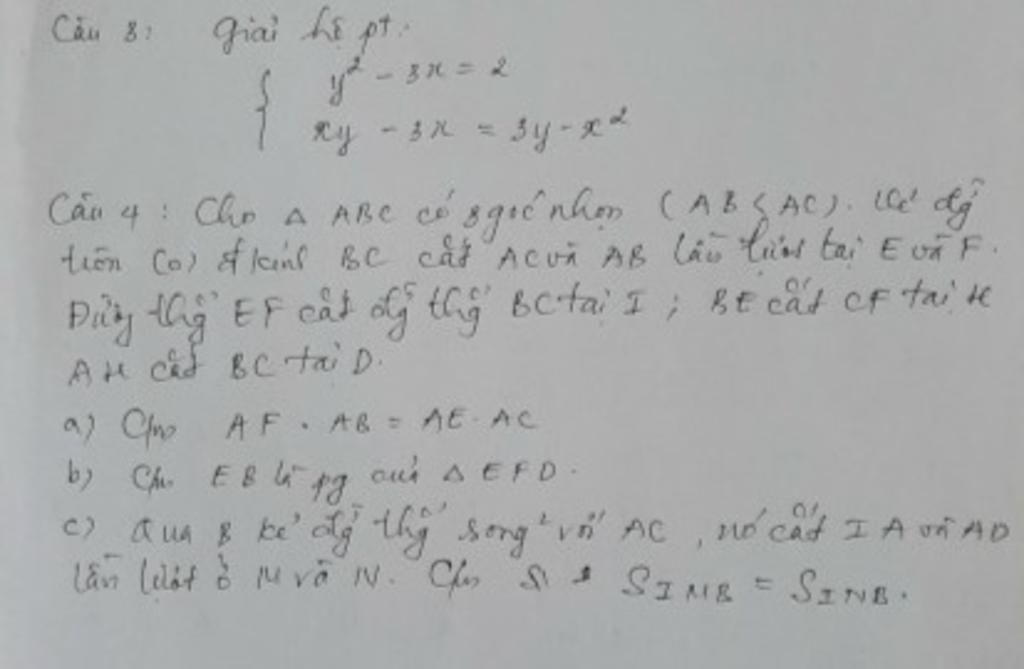 Câu 3: Giải hệ pt.
{ y² - 3x = 2
xy - 3x = 3y - x²
Câu 4: Cho △ ABC có 3 góc nhọn (AB < AC). Vẽ đg̃
tròn (O) đ kính BC cắt AC và AB lần lượt tại E và F.
Đường thg̃ EF cắt đg̃ thg̃ BC tại I; BE cắt CF tại H
AH cắt BC tại D.
a) Cm AF . AB = AE . AC
b) Cm EB là pg của △ EFD.
c) Qua B kẻ đg̃ thg̃ song² với AC, nó cắt IA và AD
lần lượt ở M và N. Cm S IMB = S INB.